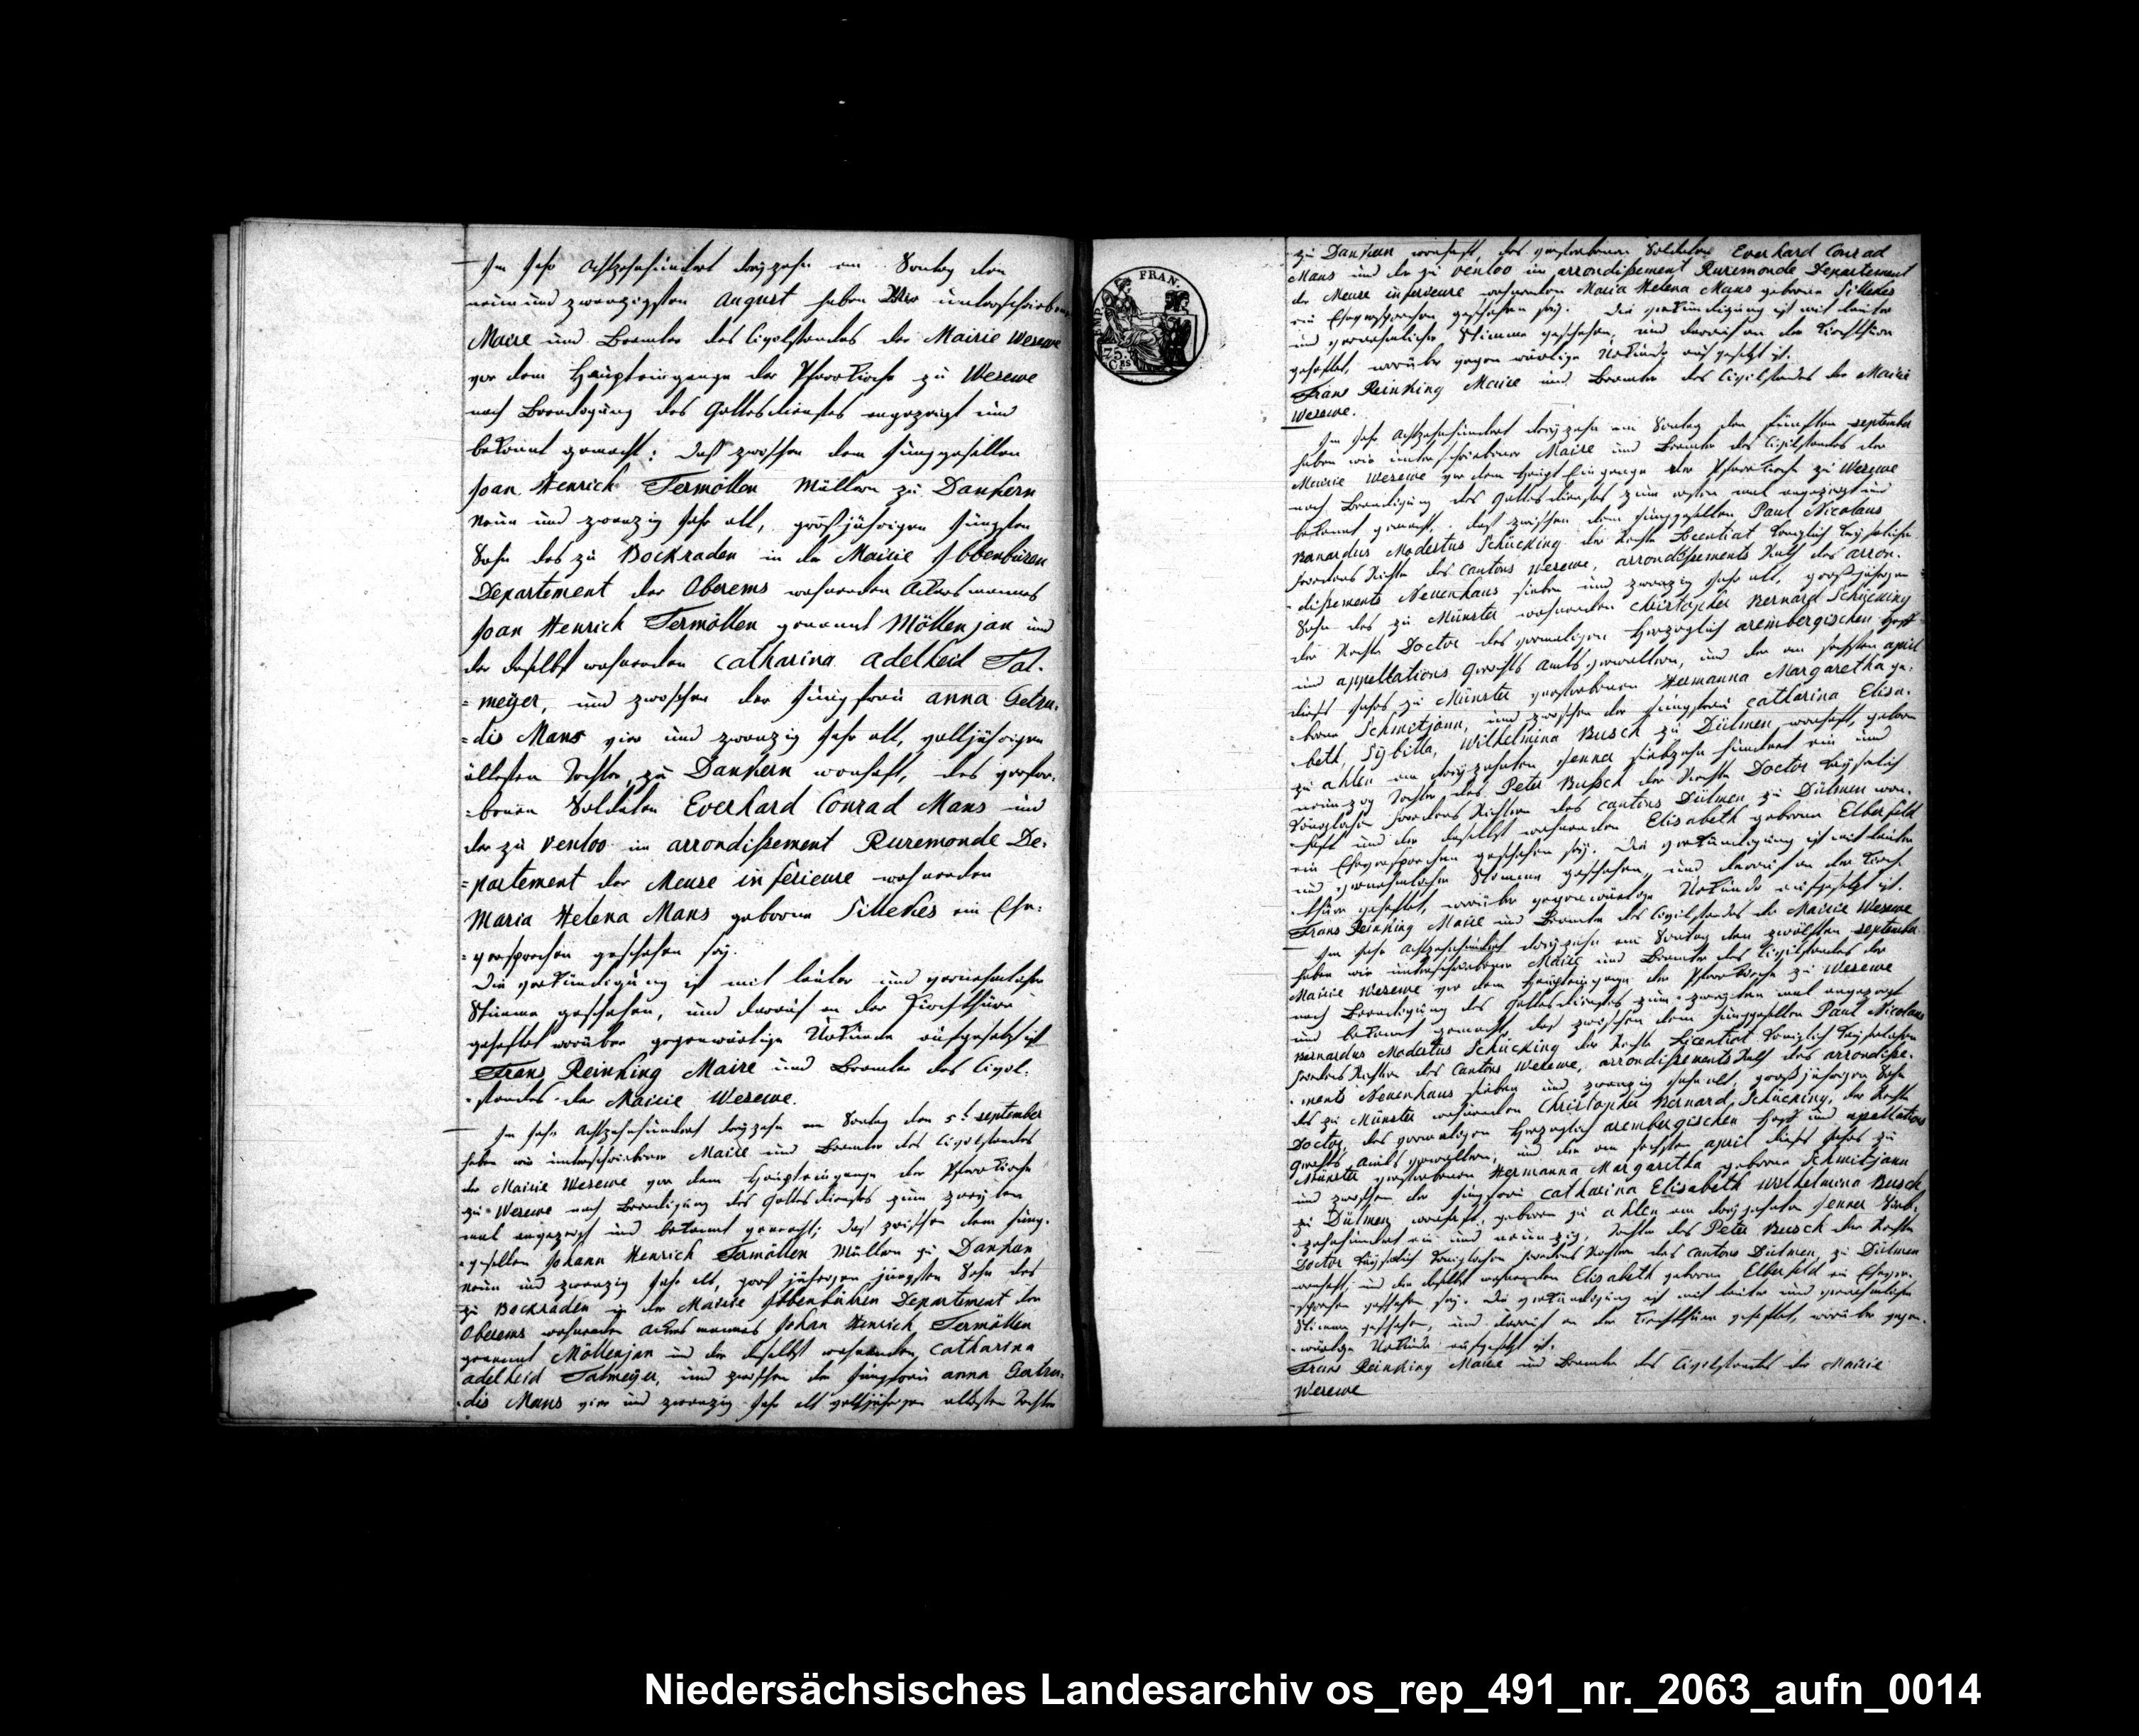 Im Jahr Achtzehnhundert dreyzehn am Sontag den
neun und zwanzigsten August haben Wir unterschriebener
Maire und Beamter des Civilstandes der Mairie Wesuwe
vor dem Haupteingange der Pfarrkirche zu Wesuwe
nach Beendigung des Gottesdienstes angezeigt und
bekannt gemacht: daß zwischen dem Junggesellen
Joan Henrich Termöllen Müllern zu Dankern
neun und zwanzig Jahr alt, großjährigen jüngsten
Sohn des zu Bockraden in der Mairie Ibbenbüren
Departement der Oberems wohnenden Ackersmannes
Joan Henrich Termöllen genannt Möllenjan und
der daselbst wohnenden Catharina Adelheid Tal-
=meÿer, und zwischen der Jungfrau Anna Getru-
=dis Mans vier und zwanzig Jahr alt, volljährigen
ältesten Tochter, zu Dankern wonhaft, des verstor-
=benen Soldaten Everhard Conrad Mans und
der zu Venloo im arrondißement Ruremonde De-
=partement der Meuse inferieure wohnenden
Maria Helena Mans geborne Sillekes ein Ehe-
=versprechen geschehen sey.
Die verkündigung ist mit lauter und vernehmlicher
Stimme geschehen, und darauf an der Kirchthüre
geheftet worüber gegenwärtige Urkunde aufgesetzt ist
Frans Reinking Maire und Beamter des Civil-
=standes der Mairie Wesuwe.
Im Jahr Achtzehnhundert dreyzehn am Sontag den 5t september
haben wir unterschriebener Maire und Beamter des Civilstandes
der Mairie Wesuwe vor dem Haupteingange der Pfarrkirche
zu Wesuwe nach Beendigung des Gottesdienstes zum zweyten
mal angezeigt und bekannt gemacht; daß zwischen dem Jung-
=gesellen Johann Henrich Termöllen Müllern zu Dankern
neun und zwanzig Jahr alt, großjährigen jüngsten Sohn des
zu Bockraden in der Mairie Ibbenbühren Departement der
Oberems wohnenden Ackersmannes Johan Henrich Termöllen
genannt Möllenjan und der daselbst wohnenden Catharina
adelheid Talmeÿer, und zwischen der Jungfrau anna Gertru-
=dis Mans vier und zwanzig Jahr alt volljährigen ältesten Tochter
FRAN.
EMP.
75.
Ces
zu Dankern wonhaft, des verstorbenen Soldaten Everhard Conrad
Mans und der zu Venloo im arrondißement Ruremonde Departement
der Meuse inferieure wohnenden Maria Helena Mans geborne Sillekes
ein Eheversprechen geschehen sey. Die verkündigung ist mit lauter
und vernehmlicher Stimme geschehen, und darauf an der Kirchthüre
geheftet, worüber gegenwärtige Urkunde aufgesetzt ist.
Frans Reinking Maire und Beamter des Civilstandes der Mairie
Wesuwe.
Im Jahr Achtzehnhundert dreyzehn am Sontag den fünften september
haben wir unterschriebener Maire und Beamter des Civilstandes der
Mairie Wesuwe vor dem Haupt Eingange der Pfarrkirche zu Wesuwe
nach Beendigung des Gottesdienstes zum ersten mal angezeigt und
bekannt gemacht, daß zwischen dem Junggesellen Paul Nicolaus
Banardus Modestus Schücking der Rechte Licentiat Königlich Kayserlichen
Friedens Richter des Cantons Wesuwe, arrondißements Rath des arron-
=dißements Neuenhaus sieben und zwanzig Jahr alt, großjährigen
Sohn des zu Münster wohnenden Christopher Bernard Schücking
der Rechte Doctor des vormaligen Herzoglich arembergischen Hof
und appellations Gerichts Amts verwaltern, und der am sechsten april
dieses Jahrs zu Münster verstorbenen Hermanna Margaretha ge-
=borne Schmitjann, und zwischen der Jungfrau Catharina Elisa-
=beth, Sÿbilla, Wilhelmina Busch zu Dülmen wonhaft, geboren
zu ahlen am dreyzehnten Jenner siebzehn hundert ein und
neunzig Tochter des Peter Busch der Rechte Doctor Kayserlich
Königlichen Friedens Richtern des Cantons Dülmen zu Dülmen won-
=haft und der daselbst wohnenden Elisabeth geborne Elberfeld
ein Eheversprechen geschehen sey. Die verkündigung ist mit lauter
und vernehmlicher Stimme geschehen, und darauf an der Kirch-
=thüre geheftet, worüber gegenwärtige Urkunde aufgesetzt ist.
Frans Reinking Maire und Beamter des Civilstandes der Mairie Wesuwe
Im Jahr Achtzehnhundert dreyzehn am Sontag den zwölften september
haben wir unterschriebener Maire und Beamter des Civilstandes der
Mairie Wesuwe vor dem Haupteingange der Pfarrkirche zu Wesuwe
nach Beendigung des Gottesdienstes zum zweyten mal angezeigt
und bekannt gemacht, daß zwischen dem Junggesellen Paul Nicolaus
Bernardus Modestus Schücking der Rechte Licentiat Königlich Kayserlichen
Friedens Richter des Cantons Wesuwe, arrondißements Rath des arrondiße-
=ments Neuenhaus sieben und zwanzig Jahr alt, großjährigen Sohn
des zu Münster wohnenden Christopher Bernard, Schücking, der Rechte
Doctor, des vormaligen Herzoglich arembergischen Hof und apellations
Gerichts Amts verwaltern, und der am sechsten april dieses Jahrs zu
Münster verstorbenen Hermanna Margaretha geborne Schmitjann
und zwischen der Jungfrau Catharina Elisabeth Wilhelmina Busch
zu Dülmen wonhaft, geboren zu ahlen am dreyzehnten Jenner Sieb-
=zehnhundert ein und neunzig, Tochter des Peter Busch der Rechte
Doctor Kayserlich Königlichen Friedens Richtern des Cantons Dülmen, zu Dülmen
wonhaft, und der daselbst wohnenden Elisabeth geborne Elberfeld ein Ehever-
=sprechen geschehen sey. Die verkündigung ist mit lauter und vernehmlicher
Stimme geschehen, und darauf an der Kirchthüre geheftet, worüber gegen-
=wärtige Urkunde aufgesetzt ist.
Frans Reinking Maire und Beamter des Civilstandes der Mairie
Wesuwe
Niedersächsisches Landesarchiv os_rep_491_nr._2063_aufn_0014